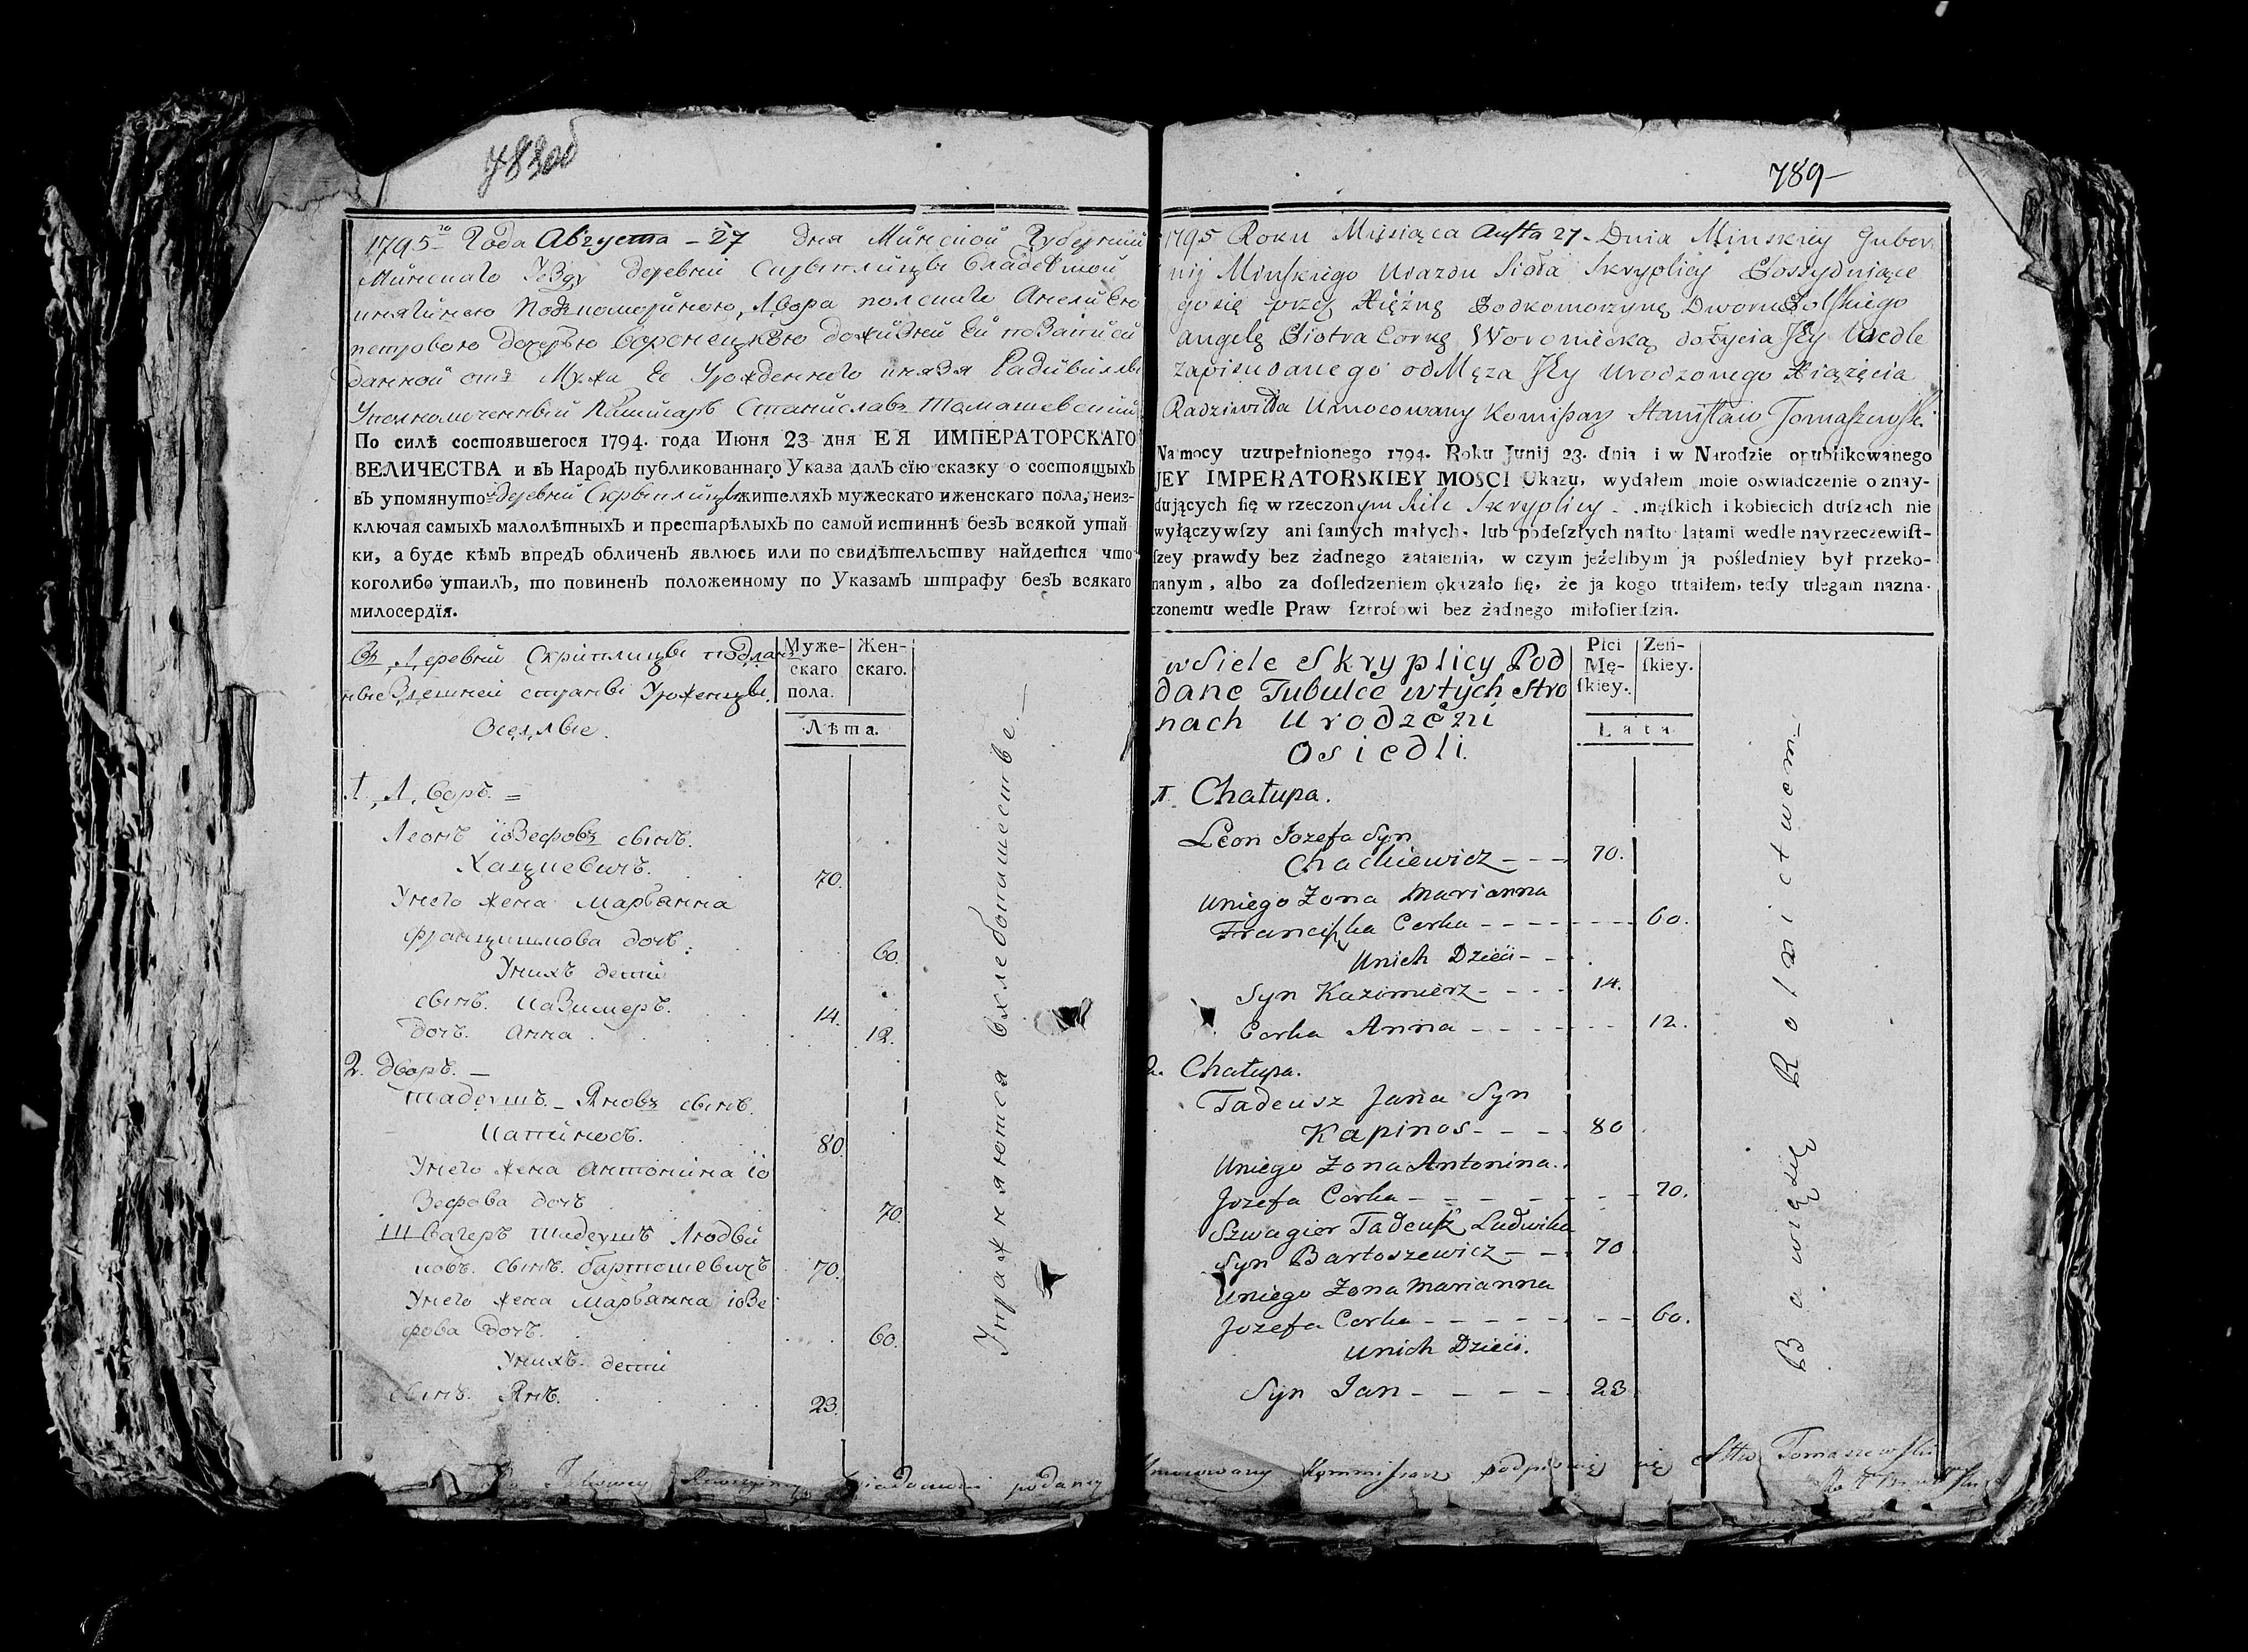 789
1795го Года Августа - 27 дня Минской Губернии
Минскаго Уезду деревни Скрыплицы владеемой
княгинею Подкомориною, Двора полскаго Анелиею
петровою дочерью воронецкою дожизней Ей по Записи
данной отъ Мужа Ее Урожденного князя Радивилла
Уполномоченный Камисаръ Станиславъ Томашевский
По силѣ состоявшегося 1794. года Июня 23 дня ЕЯ ИМПЕРАТОРСКАГО
ВЕЛИЧЕСТВА и въ НародЪ публикованнаго Указа далЪ сїю сказку о состоящыхЪ
въ упомянутой деревни Скрыплицы жителяхЪ мужескаго иженскаго пола, неиз-
ключая самыхЪ малолѣтныхЪ и престарѣлыхЪ по самой истиннѣ безЪ всякой утай
ки, а буде кѣмЪ впредЪ обличенЪ явлюсь или по свидѣтельству найдется что
коголибо утаилЪ, то повиненЪ положенному по УказамЪ штрафу безЪ всякаго
милосердїя.
Въ Деревни Скриплицы поддан
ные Здешней страны Уроженцы
Оседлые.
Муже-
скаго
пола.
Жен-
скаго.
Лѣта.
1. Дворъ. =
Леонъ іоЗефовъ сынъ.
Хацкевичъ. 70.
Унего жена Марьянна
францишкова дочь. 60.
Унихъ дети
сынъ. КаЗимеръ. 14.
дочь. Анна 12.
2. дворъ. —
тадеушъ. - Яновъ сынъ.
Капиносъ. 80.
Унего жена Антонина іо
Зефова дочь 70.
Швагеръ тадеушъ Людви
ковъ. сынъ. бартошевичъ 70.
Унего жена Марьянна іоЗе
фова дочь. 60.
Унихъ. дети
сынъ. Янъ. 23.
Упражняются вхлебопашестве. —
podany
789-
1795 Roku Miesiąca Austa 27. Dnia Minskiey Guber
nij Minskiego Uiazdu Sioła Skryplicy Possyduiące
gosię przez Xiężnę Podkomorzynę Dworu Polskiego
Angelę Piotra Corkę Woroniecką dożycia Jey Wedle
Zapisudanego od Męza Jey Urodzonego Xiążęcia
Radziwiłła Umocowany Komisarz Stanisław Tomaszewski.
Na mocy uzupełnionego 1794. Roku Junij 23. dnia i w Narodzie opublikowanego
JEY IMPERATORSKIEY MOSCI Ukazu, wydałem moie oswiadczenie o znay-
dujących ſię w rzeczonym Siele Skryplicy - męſkich i kobiecich duſzach nie
wyłączywſzy ani ſamych małych, lub podeſzłych nadto latami wedle nayrzeczewiſt-
ſzey prawdy bez żadnego zataienia, w czym jeżelibym ja poślednìey był przeko-
nanym, albo za doſledzeniem okazało ſię, że ja kogo utaiłem, tedy ulegam nazna-
czonemu wedle Praw ſztrofowi bez żadnego miłoſierdzia.
w Siele Skryplicy Pod
dane Tubulce wtych Stro
nach Urodzeni
Osiedli.
Płci
Mę-
ſkiey.
Zeń-
ſkiey.
Lata
1. Chałupa.
Leon Jozefa Syn
Chackiewicz - - - 70.
Uniego Zona Marianna
Franciszka Corka - - - - - - - 60.
Unich Dzieci - -
Syn Kazimierz - - - - 14.
Corka Anna - - - - - - - 12.
2. Chałupa.
Tadeusz Jana Syn
Kapinos - - - - 80
Uniego Zona Antonina.
Jozefa Corka - - - - - - - 70.
Szwagier Tadeusz Ludwika
Syn Bartoszewicz - - 70
Uniego Zona Marianna
Jozefa Corka - - - - - - - 60.
Unich Dzieci.
Syn Jan - - - - - 23
Bawią się Rolnictwem. —
Umocowany Kommisarz podpisuię się Stto Tomaszewski